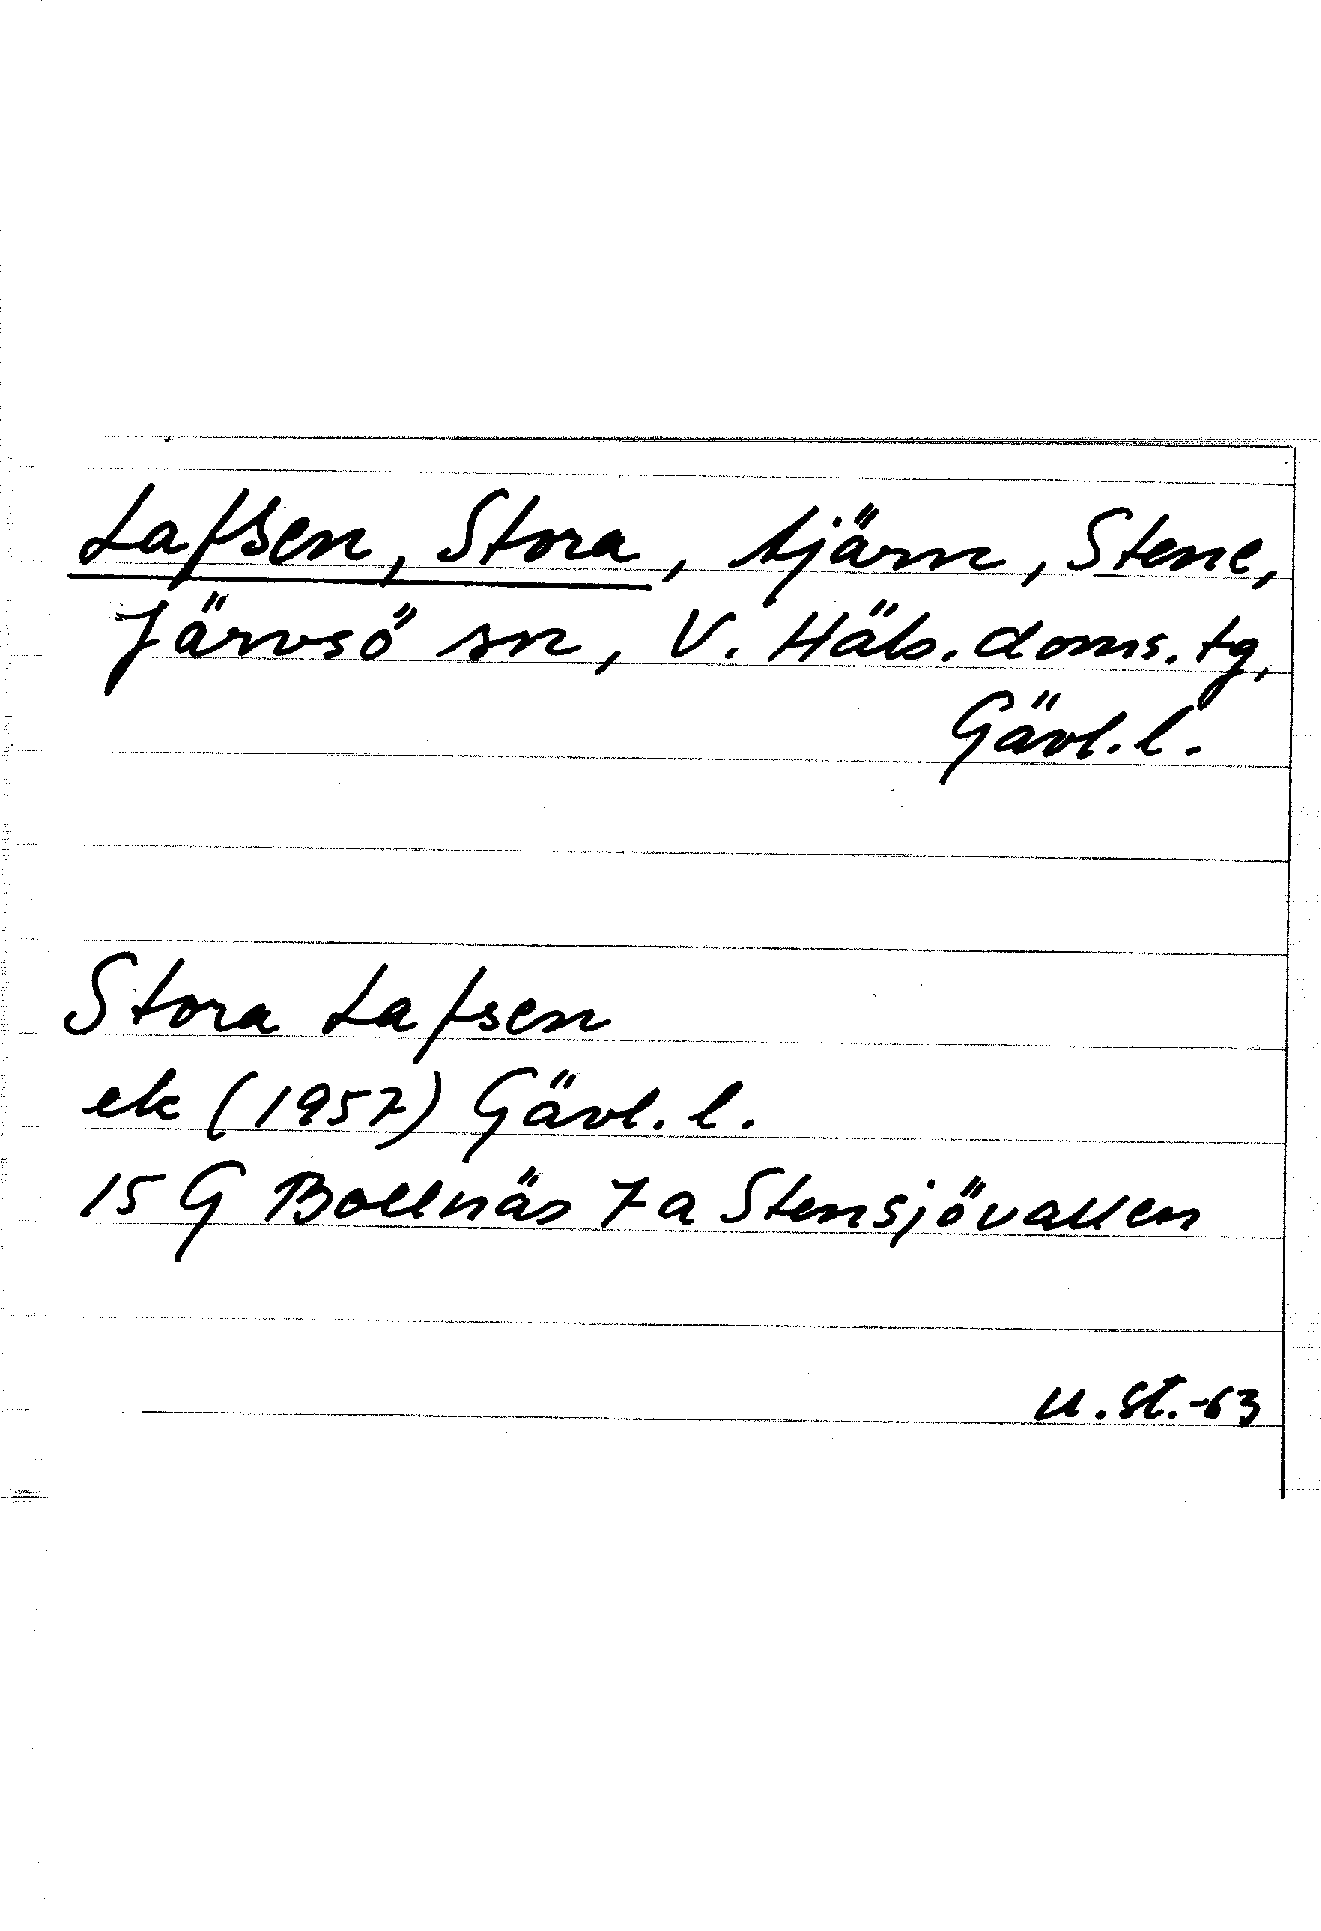 Lafsen, Stora, tjärn, Stene,
Järvsö sn, V. Häls. doms. tg,
Gävl. l.
Stora Lafsen
ek (1957) Gävl. l.
15 G Bollnäs 7 a Stensjövallen
U. St. -63